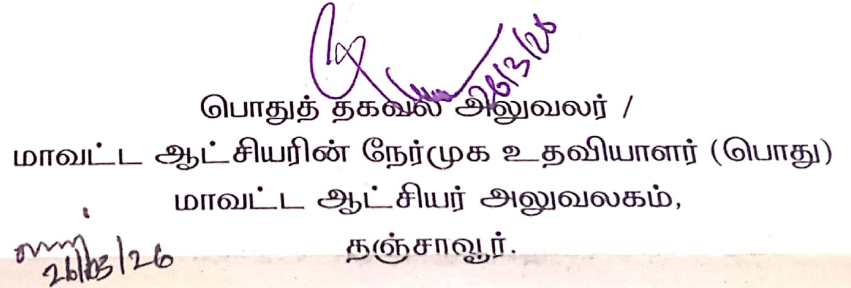 26/3/26
பொதுத் தகவல் அலுவலர் /
மாவட்ட ஆட்சியரின் நேர்முக உதவியாளர் (பொது)
மாவட்ட ஆட்சியர் அலுவலகம்,
தஞ்சாவூர்.
26/03/26